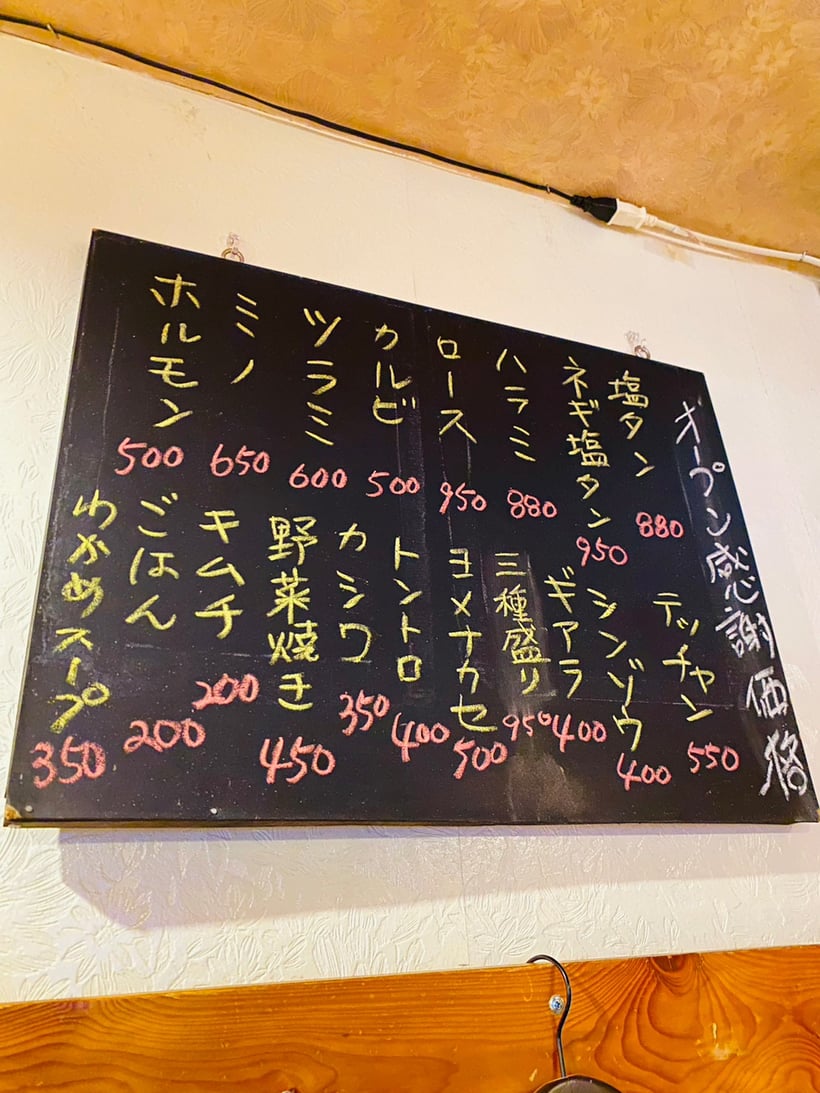 オープン感謝価格
塩タン 880
ネギ塩タン 950
ハラミ 880
ロース 950
カルビ 500
ツラミ 600
ミノ 650
ホルモン 500
テッチャン 550
シンゾウ 400
ギアラ 400
三種盛り 950
ヨメナカセ 500
トントロ 400
カシワ 350
野菜焼き 450
キムチ 200
ごはん 200
わかめスープ 350